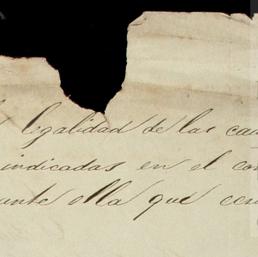 legalidad de las ca
indicadas en el co
ante ella que cer